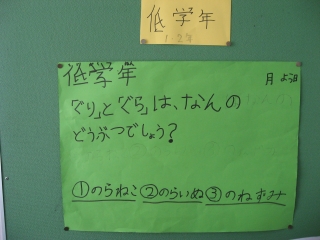 低学年
1・2年
低学年 月 よう日
「ぐり」と「ぐら」は、なんの
どうぶつでしょう?
①のらねこ ②のらいぬ ③のねずみ